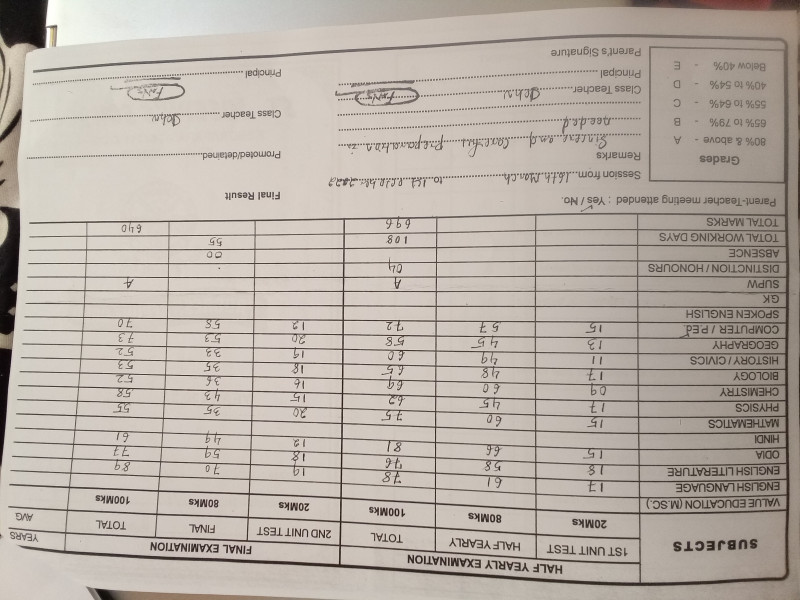 SUBJECTS HALF YEARLY EXAMINATION FINAL EXAMINATION YEARS
1ST UNIT TEST HALF YEARLY TOTAL 2ND UNIT TEST FINAL TOTAL AVG
20Mks 80Mks 100Mks 20Mks 80Mks 100Mks
VALUE EDUCATION (M.SC.)
ENGLISH LANGUAGE 17 61 78 19 70 89
ENGLISH LITERATURE 18 58 76 18 59 77
ODIA 15 66 81 12 49 61
HINDI
MATHEMATICS 15 60 75 20 35 55
PHYSICS 17 45 62 15 43 58
CHEMISTRY 09 60 69 16 36 52
BIOLOGY 17 48 65 18 35 53
HISTORY / CIVICS 11 49 60 19 33 52
GEOGRAPHY 13 45 58 20 53 73
COMPUTER / P.Ed 15 57 72 12 58 70
SPOKEN ENGLISH
GK
SUPW A A
DISTINCTION / HONOURS 04
ABSENCE 00
TOTAL WORKING DAYS 108 55
TOTAL MARKS 696 640
Parent-Teacher meeting attended : Yes / No.
Final Result
Session from 16th March to 1st
Promoted/detained
Remarks
Sincere and careful preparation is
needed
Class Teacher
Principal
Class Teacher
Principal
Parent's Signature
Grades
80% & above - A
65% to 79% - B
55% to 64% - C
40% to 54% - D
Below 40% - E